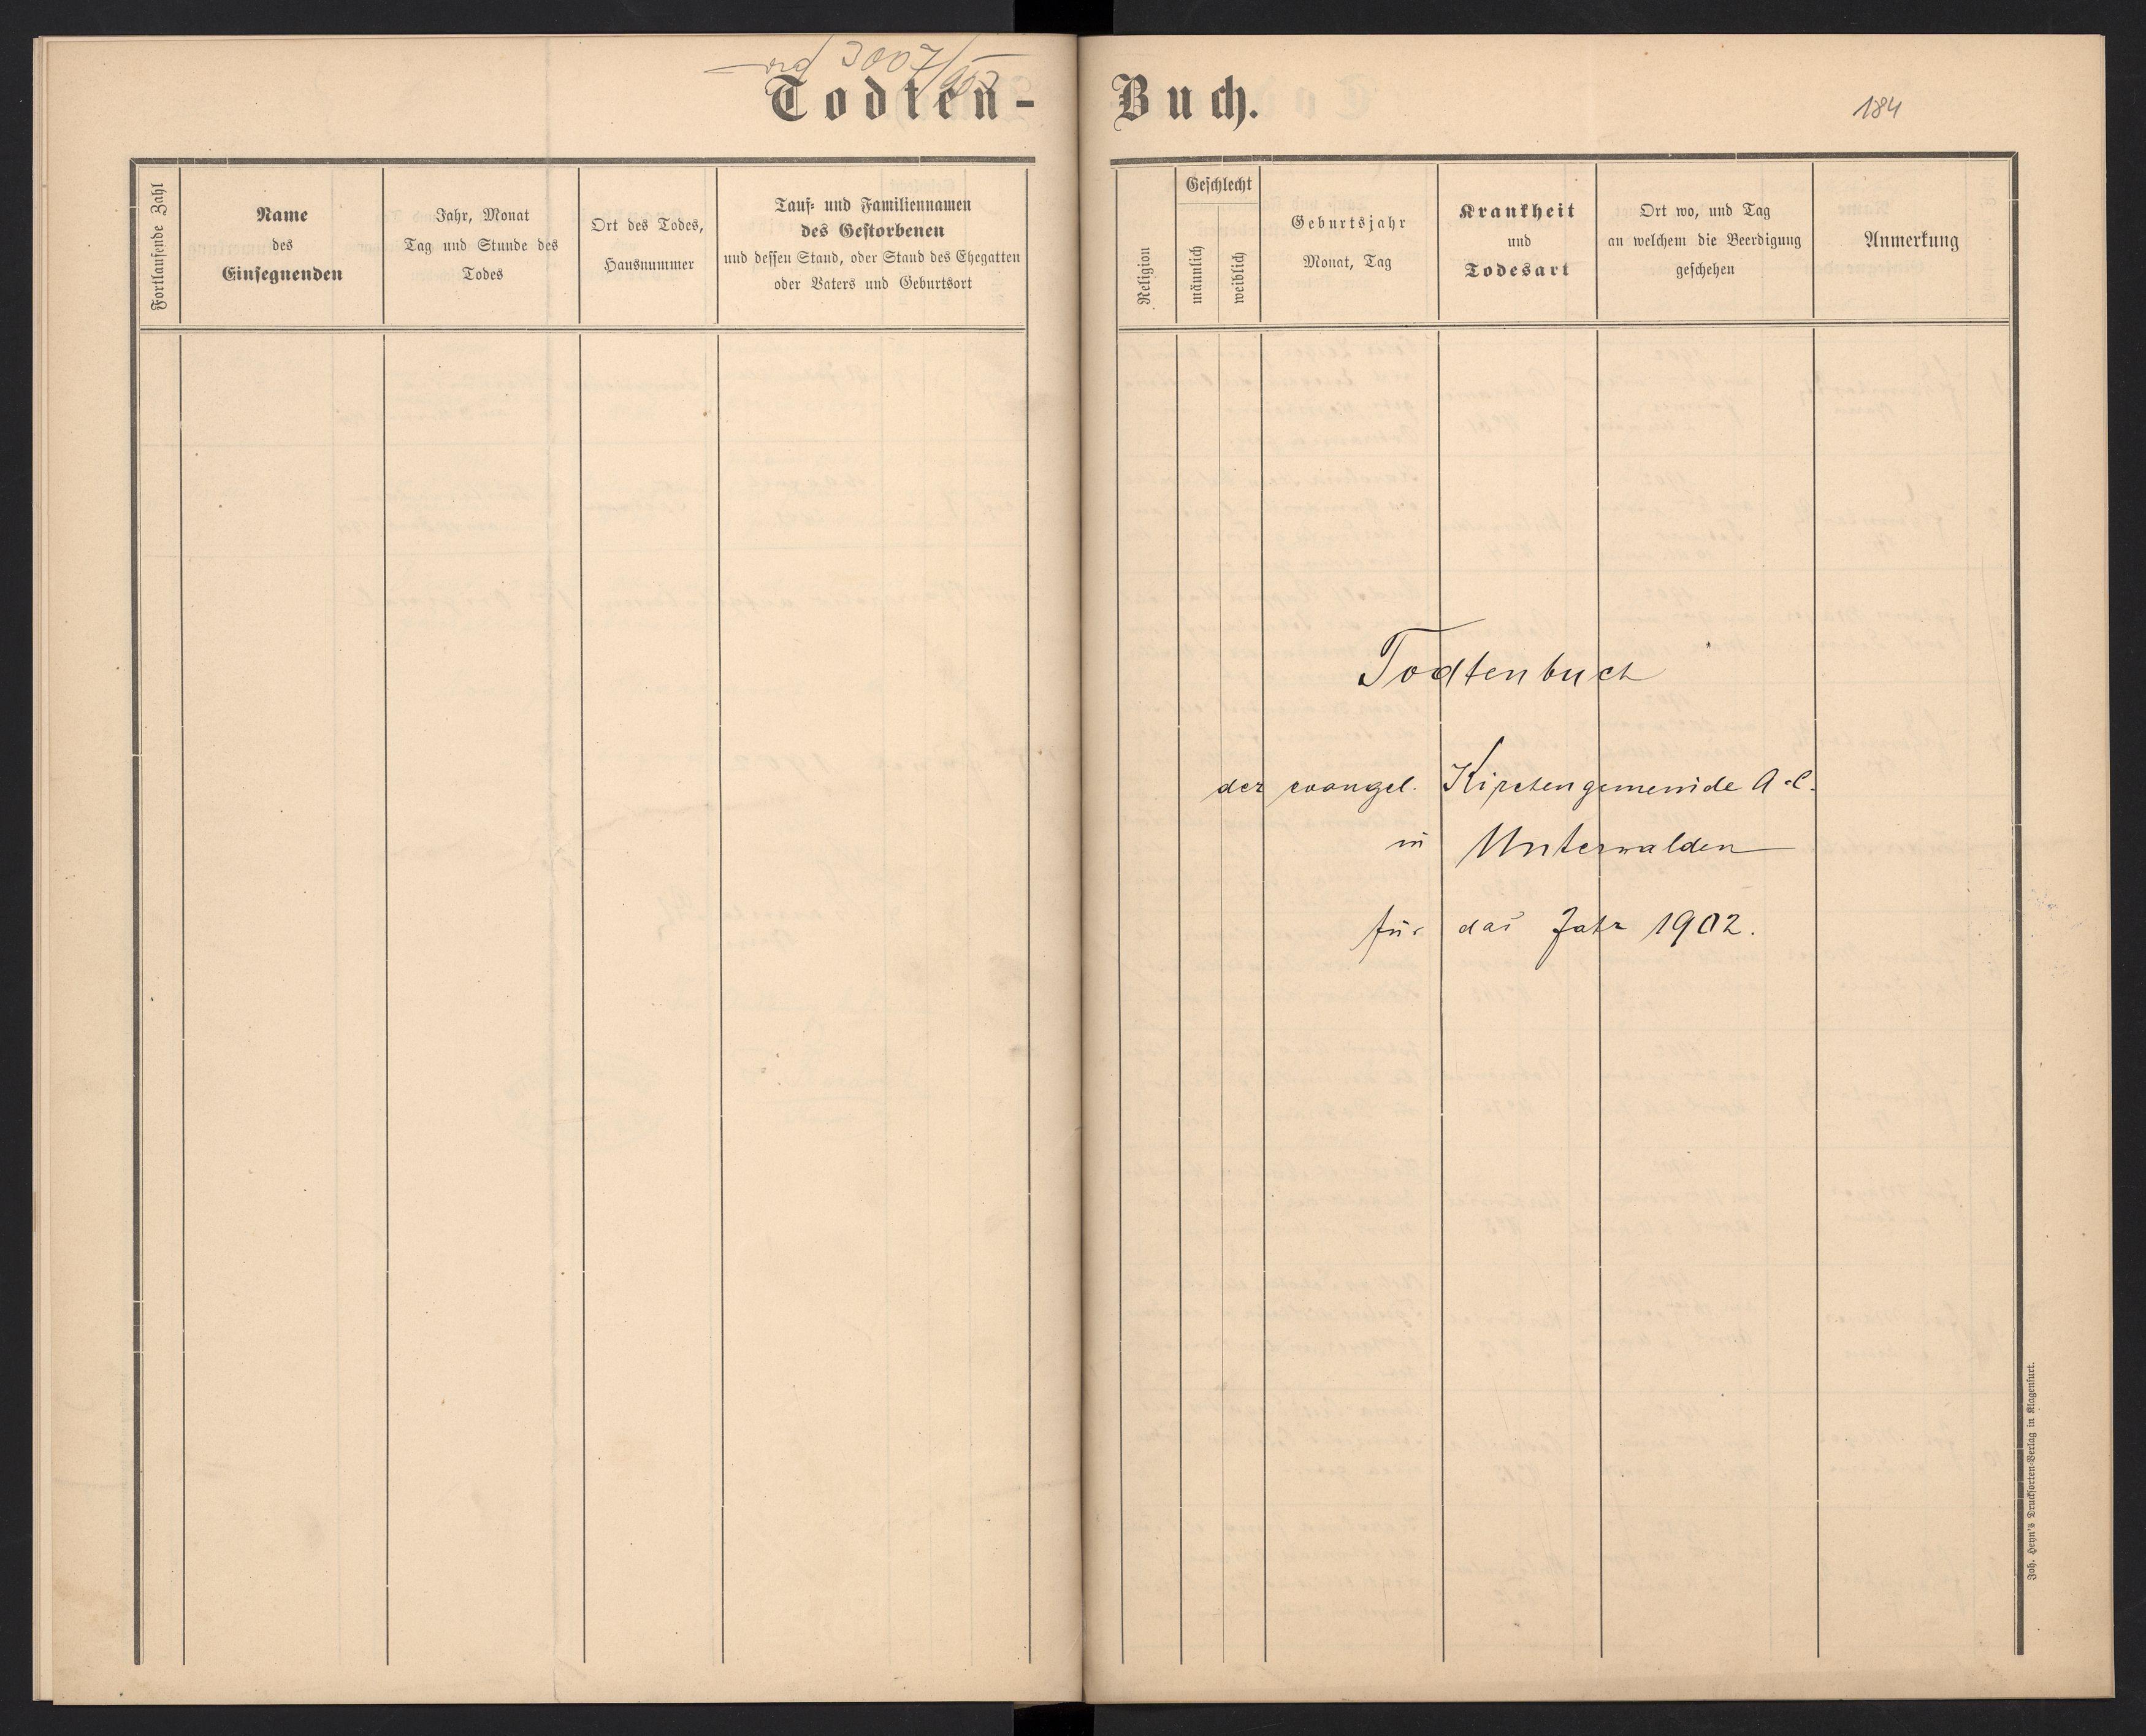 ad 3007/903
Todten-Buch.
184
Fortlaufende Zahl
Name
des
Einsegnenden
Jahr, Monat
Tag und Stunde des
Todes
Ort des Todes,
Hausnummer
Tauf- und Familiennamen
des Gestorbenen
und dessen Stand, oder Stand des Ehegatten
oder Vaters und Geburtsort
Religion
Geschlecht
männlich
weiblich
Geburtsjahr
Monat, Tag
Krankheit
und
Todesart
Ort wo, und Tag
an welchem die Beerdigung
geschehen
Anmerkung
Todtenbuch
der evangel. Kirchengemeinde A.C.
in Unterwalden
für das Jahr 1902.
Joh. Heyn's Drucksorten-Verlag in Klagenfurt.